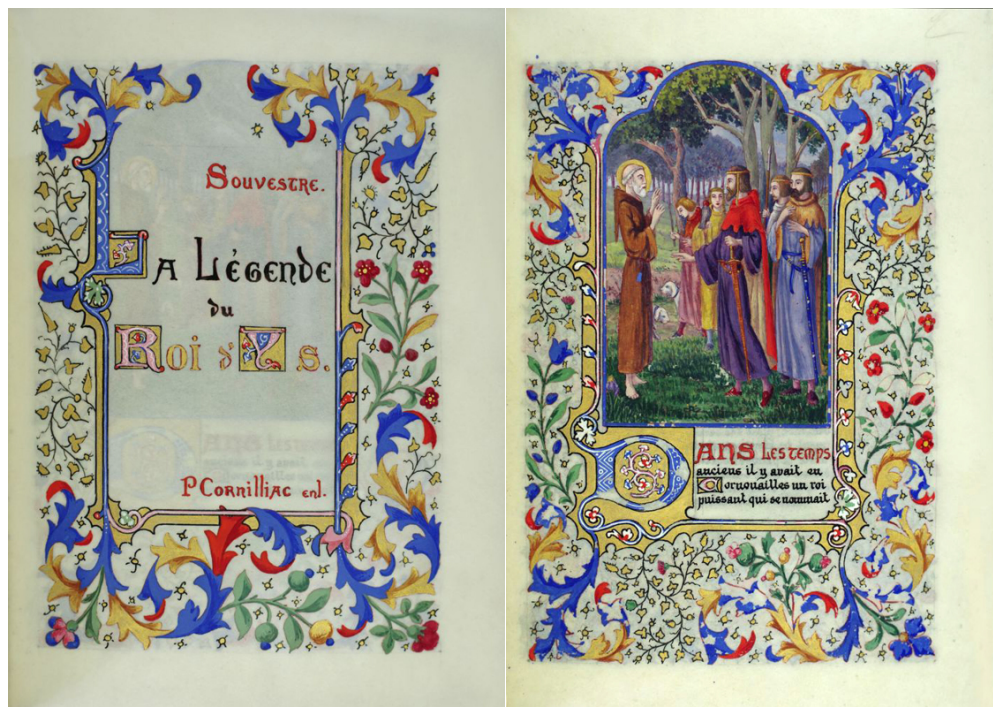 Souvestre.
La Légende
du
Roi d'Ys.
P Cornilliac enl.
Dans les temps
anciens il y avait en
Cornouailles un roi
puissant qui se nommait